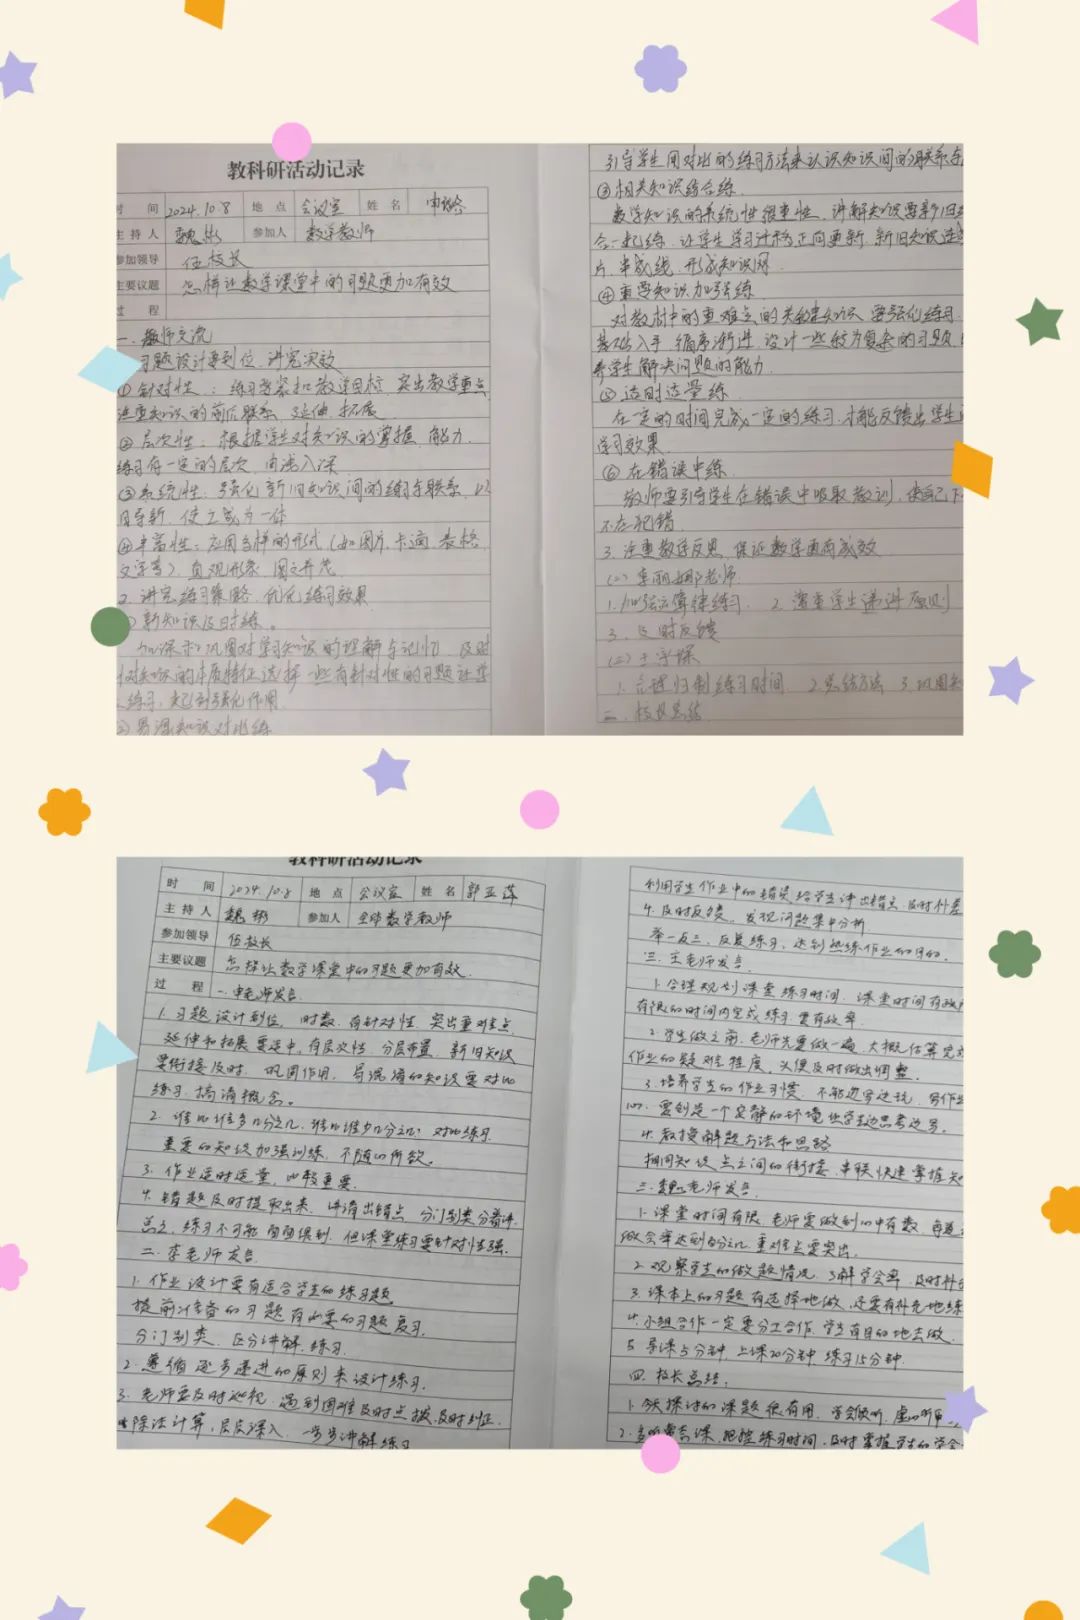 教科研活动记录
时 间 2024.10.8 地 点 会议室 姓 名
主 持 人 魏彬 参加人 数学教师
参加领导 伍校长
主要议题 怎样让数学课堂中的习题更加有效
过 程
一、教师交流
习题设计要到位,讲究实效
①针对性:练习要紧扣教学目标,突出教学重点
注重知识的前后联系、延伸、拓展
②层次性:根据学生对知识的掌握、能力,
练习有一定的层次,由浅入深
③系统性:强化新旧知识间的练习与联系,以
旧导新,使之成为一体
④丰富性:应用多样的形式(如图片、卡通、表格、
文字等),直观形象,图文并茂
2.讲究练习策略,优化练习效果
①新知识及时练。
加深和巩固对学习知识的理解与记忆,及时
对知识的本质特征选择一些有针对性的习题让学
练习,起到强化作用
②易混知识对比练
引导学生用对比的练习方法来认识知识间的联系与
③相关知识结合练
数学知识的系统性很重性,讲解知识要新旧
合一起练,让学生学习迁移正向更新,新旧知识连
片,串成线,形成知识网
④重要知识加强练
对教材中的重难点的关键知识,要强化练习,
基础入手,循序渐进,设计一些较为复杂的习题,
养学生解决问题的能力
⑤适时适量练
在一定的时间完成一定的练习,才能反馈出学生
学习效果
⑥在错误中练
教师要引导学生在错误中吸取教训,使自己下
不在犯错
3.注重教学反思,保证教学更有成效
(二)李丽娜老师
1.加强运算律练习 2.遵重学生递进原则
3.及时反馈
(三)王字探
1.合理归制练习时间 2.总结方法 3.巩固知
二、校长总结
教科研活动记录
时 间 2024.10.8 地 点 会议室 姓 名 郭亚萍
主 持 人 魏彬 参加人 全体数学教师
参加领导 伍校长
主要议题 怎样让数学课堂中的习题更加有效
过 程 一.申老师发言
1.习题设计到位,时数,有针对性,突出重难点
延伸和拓展要适中,有层次性,分层布置,新旧知识
要衔接及时,巩固作用,易混淆的知识要对比
练习,搞清概念。
2.谁比谁多几分之几,谁比谁少几分之几:对比练习
重要的知识加强训练,不随心所欲。
3.作业适时适量,比较重要
4.错题及时提取出来,讲清出错点,分门别类分着讲
总之,练习不可能面面俱到,但课堂练习要针对性强.
二.李老师发言
1.作业设计要有适合学生的练习题
提前准备的习题有必要的习题复习,
分门别类,区分讲解,练习.
2.遵循逐步递进的原则来设计练习.
3.老师要及时巡视,遇到困难及时点拨,及时纠正.
除法计算,层层深入,一步步讲解练习
利用学生作业中的错误给学生讲出错点,及时补差
4.及时反馈,发现问题集中分析
举一反三,反复练习,达到熟练作业的目的.
三.王老师发言
1.合理规划课堂练习时间,课堂时间有效
有限的时间内完成练习,要有效率
2.学生做之前,老师先要做一遍,大概估算完
作业的疑难程度,以便及时做出调整.
3.培养学生的作业习惯,不能边写边玩,写作业
要创造一个安静的环境让学生边思考边写.
4.教授解题方法和思路
相同知识点之间的衔接,串联快速掌握知
三.魏老师发言.
1.课堂时间有限,老师要做到心中有数,每道
做会率达到百分之几,重难点要突出.
2.观察学生的做题情况,了解学会率,及时补
3.课本上的习题有选择地做,还要有补充地练
4.小组合作一定要分工合作,学生有目的地去做.
5.导课5分钟,上课20分钟,练习15分钟.
四.校长总结.
1.今天探讨的课题很有用,学会倾听,虚心听
2.多听常态课,把控练习时间,及时掌握学生的学会